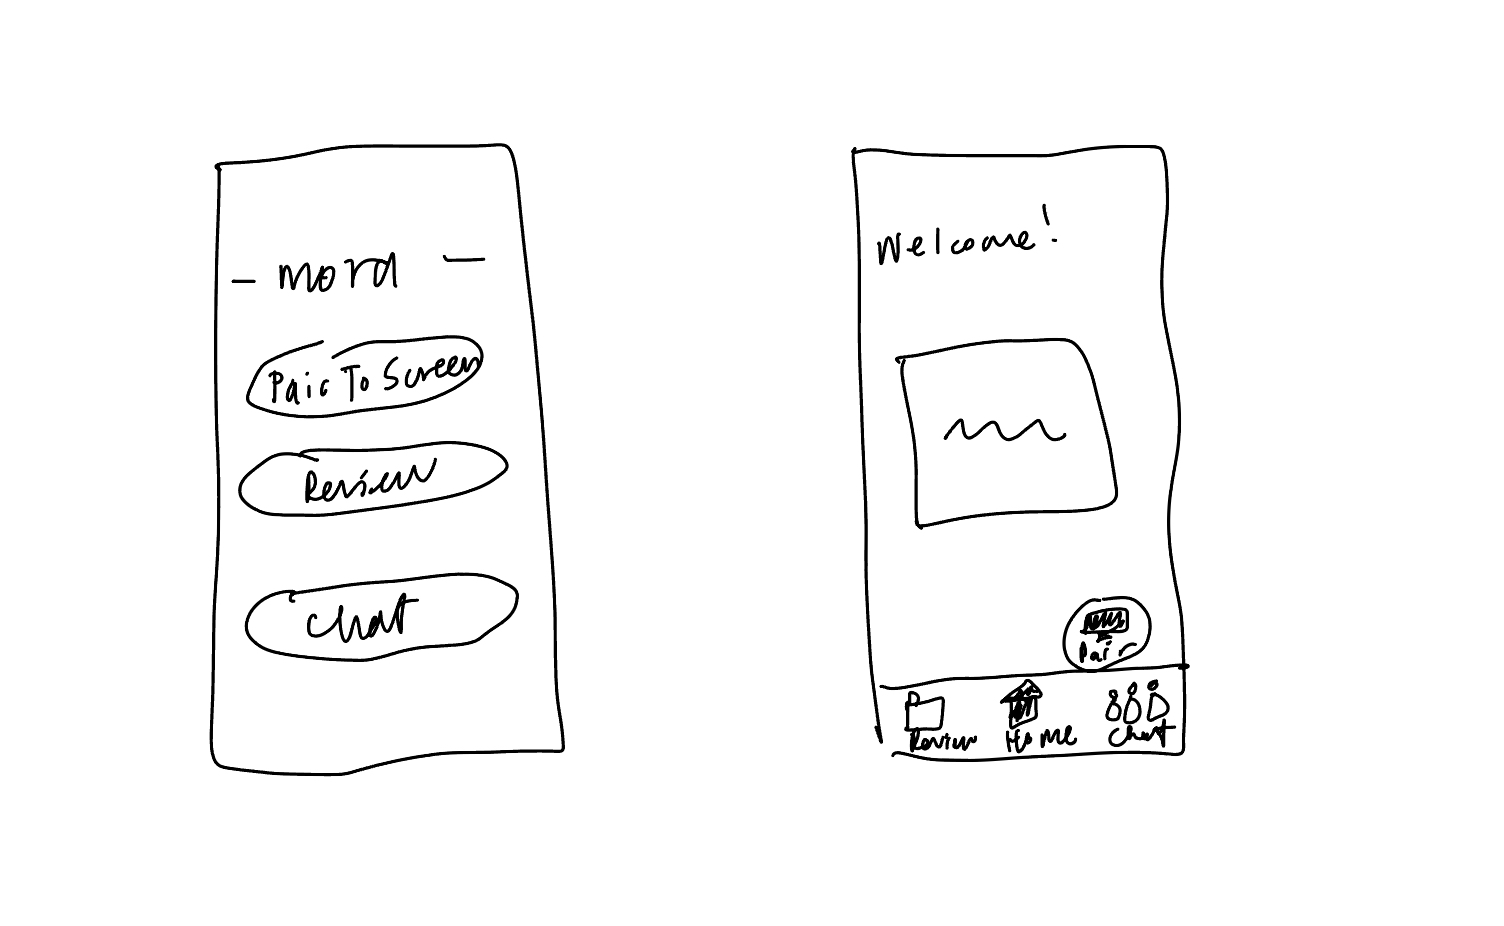 - mora -
Pair To Screen
Review
Chat
Welcome!
Pair
Review Home Chat